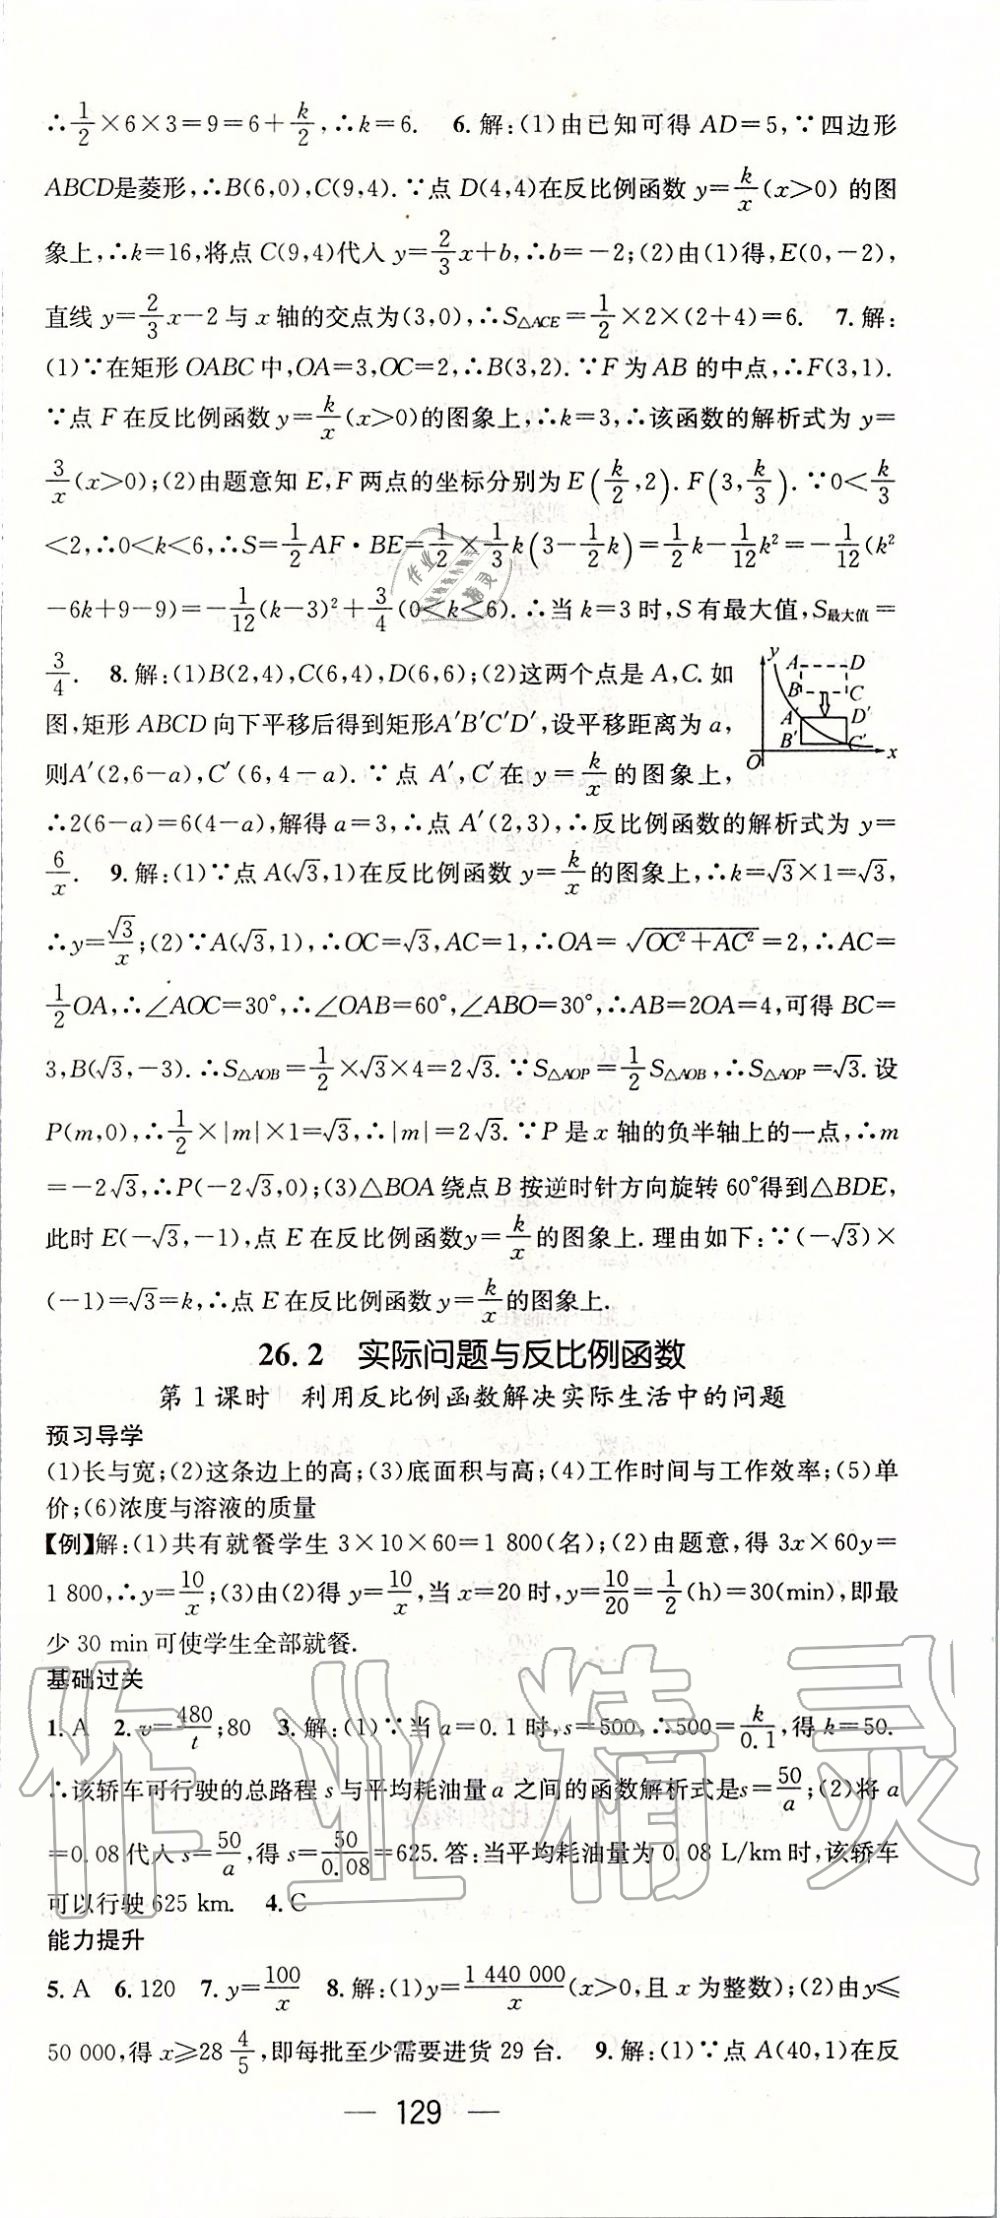 ∴1/2×6×3=9=6+k/2,∴k=6. 6.解:(1)由已知可得 AD=5,∵四边形
ABCD是菱形,∴B(6,0),C(9,4).∵点 D(4,4)在反比例函数 y=k/x(x>0) 的图
象上,∴k=16,将点 C(9,4)代入 y=2/3x+b,∴b=-2;(2)由(1)得,E(0,-2),
直线 y=2/3x-2 与 x 轴的交点为(3,0),∴S△ACE=1/2×2×(2+4)=6. 7.解:
(1)∵在矩形 OABC 中,OA=3,OC=2,∴B(3,2).∵F 为 AB 的中点,∴F(3,1).
∵点 F 在反比例函数 y=k/x(x>0)的图象上,∴k=3,∴该函数的解析式为 y=
3/x(x>0);(2)由题意知 E,F 两点的坐标分别为 E(k/2,2).F(3,k/3).∵0<k/3
<2,∴0<k<6,∴S=1/2AF·BE=1/2×1/3k(3-1/2k)=1/2k-1/12k²=-1/12(k²
-6k+9-9)=-1/12(k-3)²+3/4(0<k<6).∴当 k=3 时,S 有最大值,S最大值=
3/4. 8.解:(1)B(2,4),C(6,4),D(6,6);(2)这两个点是 A,C.如
图,矩形 ABCD 向下平移后得到矩形A′B′C′D′,设平移距离为 a,
则A′(2,6-a),C′(6,4-a).∵点 A′,C′在 y=k/x的图象上,
y
A
D
B
C
A′
D′
B′
C′
O
x
∴2(6-a)=6(4-a),解得 a=3,∴点 A′(2,3),∴反比例函数的解析式为 y=
6/x. 9.解:(1)∵点 A(√3,1)在反比例函数 y=k/x的图象上,∴k=√3×1=√3,
∴y=√3/x;(2)∵A(√3,1),∴OC=√3,AC=1,∴OA=√(OC²+AC²)=2,∴AC=
1/2OA,∴∠AOC=30°,∴∠OAB=60°,∠ABO=30°,∴AB=2OA=4,可得 BC=
3,B(√3,-3).∴S△AOB=1/2×√3×4=2√3.∵S△AOP=1/2S△AOB,∴S△AOP=√3.设
P(m,0),∴1/2×|m|×1=√3,∴|m|=2√3.∵P 是 x 轴的负半轴上的一点,∴m
=-2√3,∴P(-2√3,0);(3)△BOA 绕点 B 按逆时针方向旋转 60°得到△BDE,
此时 E(-√3,-1),点 E 在反比例函数y=k/x的图象上.理由如下:∵(-√3)×
(-1)=√3=k,∴点 E 在反比例函数 y=k/x的图象上.
26.2 实际问题与反比例函数
第 1 课时 利用反比例函数解决实际生活中的问题
预习导学
(1)长与宽;(2)这条边上的高;(3)底面积与高;(4)工作时间与工作效率;(5)单
价;(6)浓度与溶液的质量
【例】解:(1)共有就餐学生 3×10×60=1 800(名);(2)由题意,得 3x×60y=
1 800,∴y=10/x;(3)由(2)得 y=10/x,当 x=20 时,y=10/20=1/2(h)=30(min),即最
少 30 min 可使学生全部就餐.
基础过关
1.A 2.v=480/t;80 3.解:(1)∵当 a=0.1 时,s=500,∴500=k/0.1,得 k=50.
∴该轿车可行驶的总路程 s 与平均耗油量 a 之间的函数解析式是s=50/a;(2)将 a
=0.08 代入 s=50/a,得 s=50/0.08=625.答:当平均耗油量为 0.08 L/km时,该轿车
可以行驶 625 km. 4.C
能力提升
5.A 6.120 7.y=100/x 8.解:(1)y=1 440 000/x(x>0,且 x 为整数);(2)由 y≤
50 000,得 x≥28 4/5,即每批至少需要进货 29 台. 9.解:(1)∵点 A(40,1)在反
— 129 —
作业精灵
作业精灵